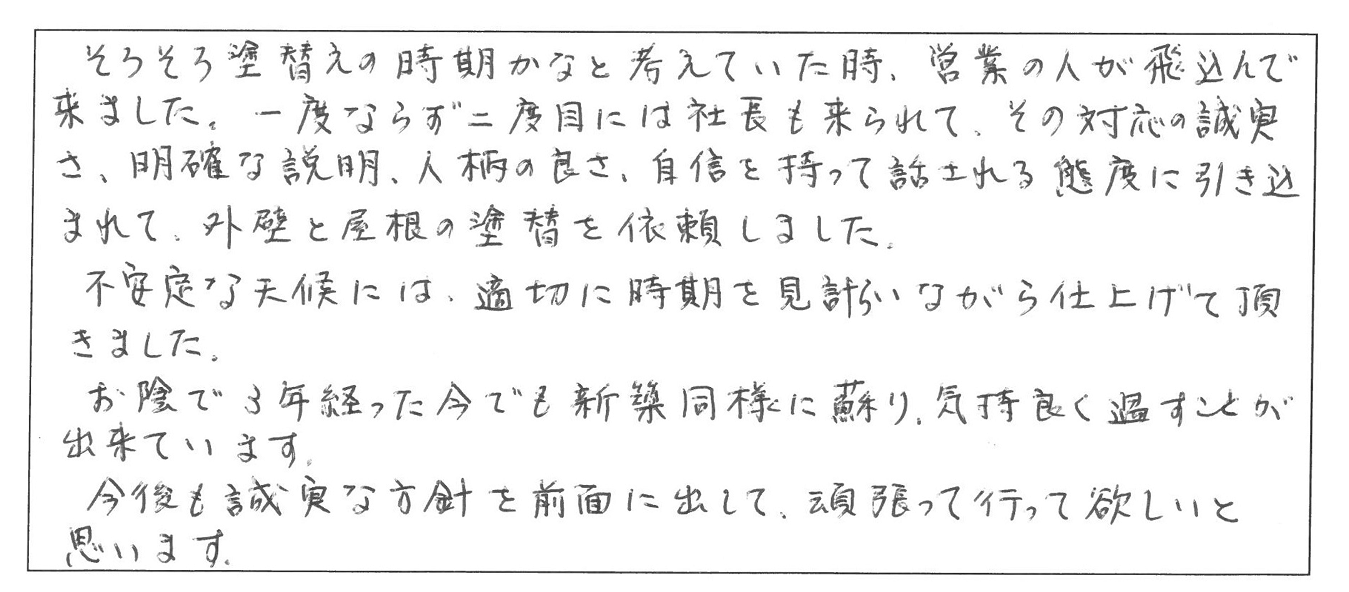 そろそろ塗替えの時期かなと考えていた時、営業の人が飛込んで
来ました。一度ならず二度目には社長も来られて、その対応の誠実
さ、明確な説明、人柄の良さ、自信を持って話される態度に引き込
まれて、外壁と屋根の塗替を依頼しました。
不安定な天候には、適切に時期を見計らいながら仕上げて頂
きました。
お陰で3年経った今でも新築同様に蘇り、気持良く過すことが
出来ています。
今後も誠実な方針を前面に出して、頑張って行って欲しいと
思います。